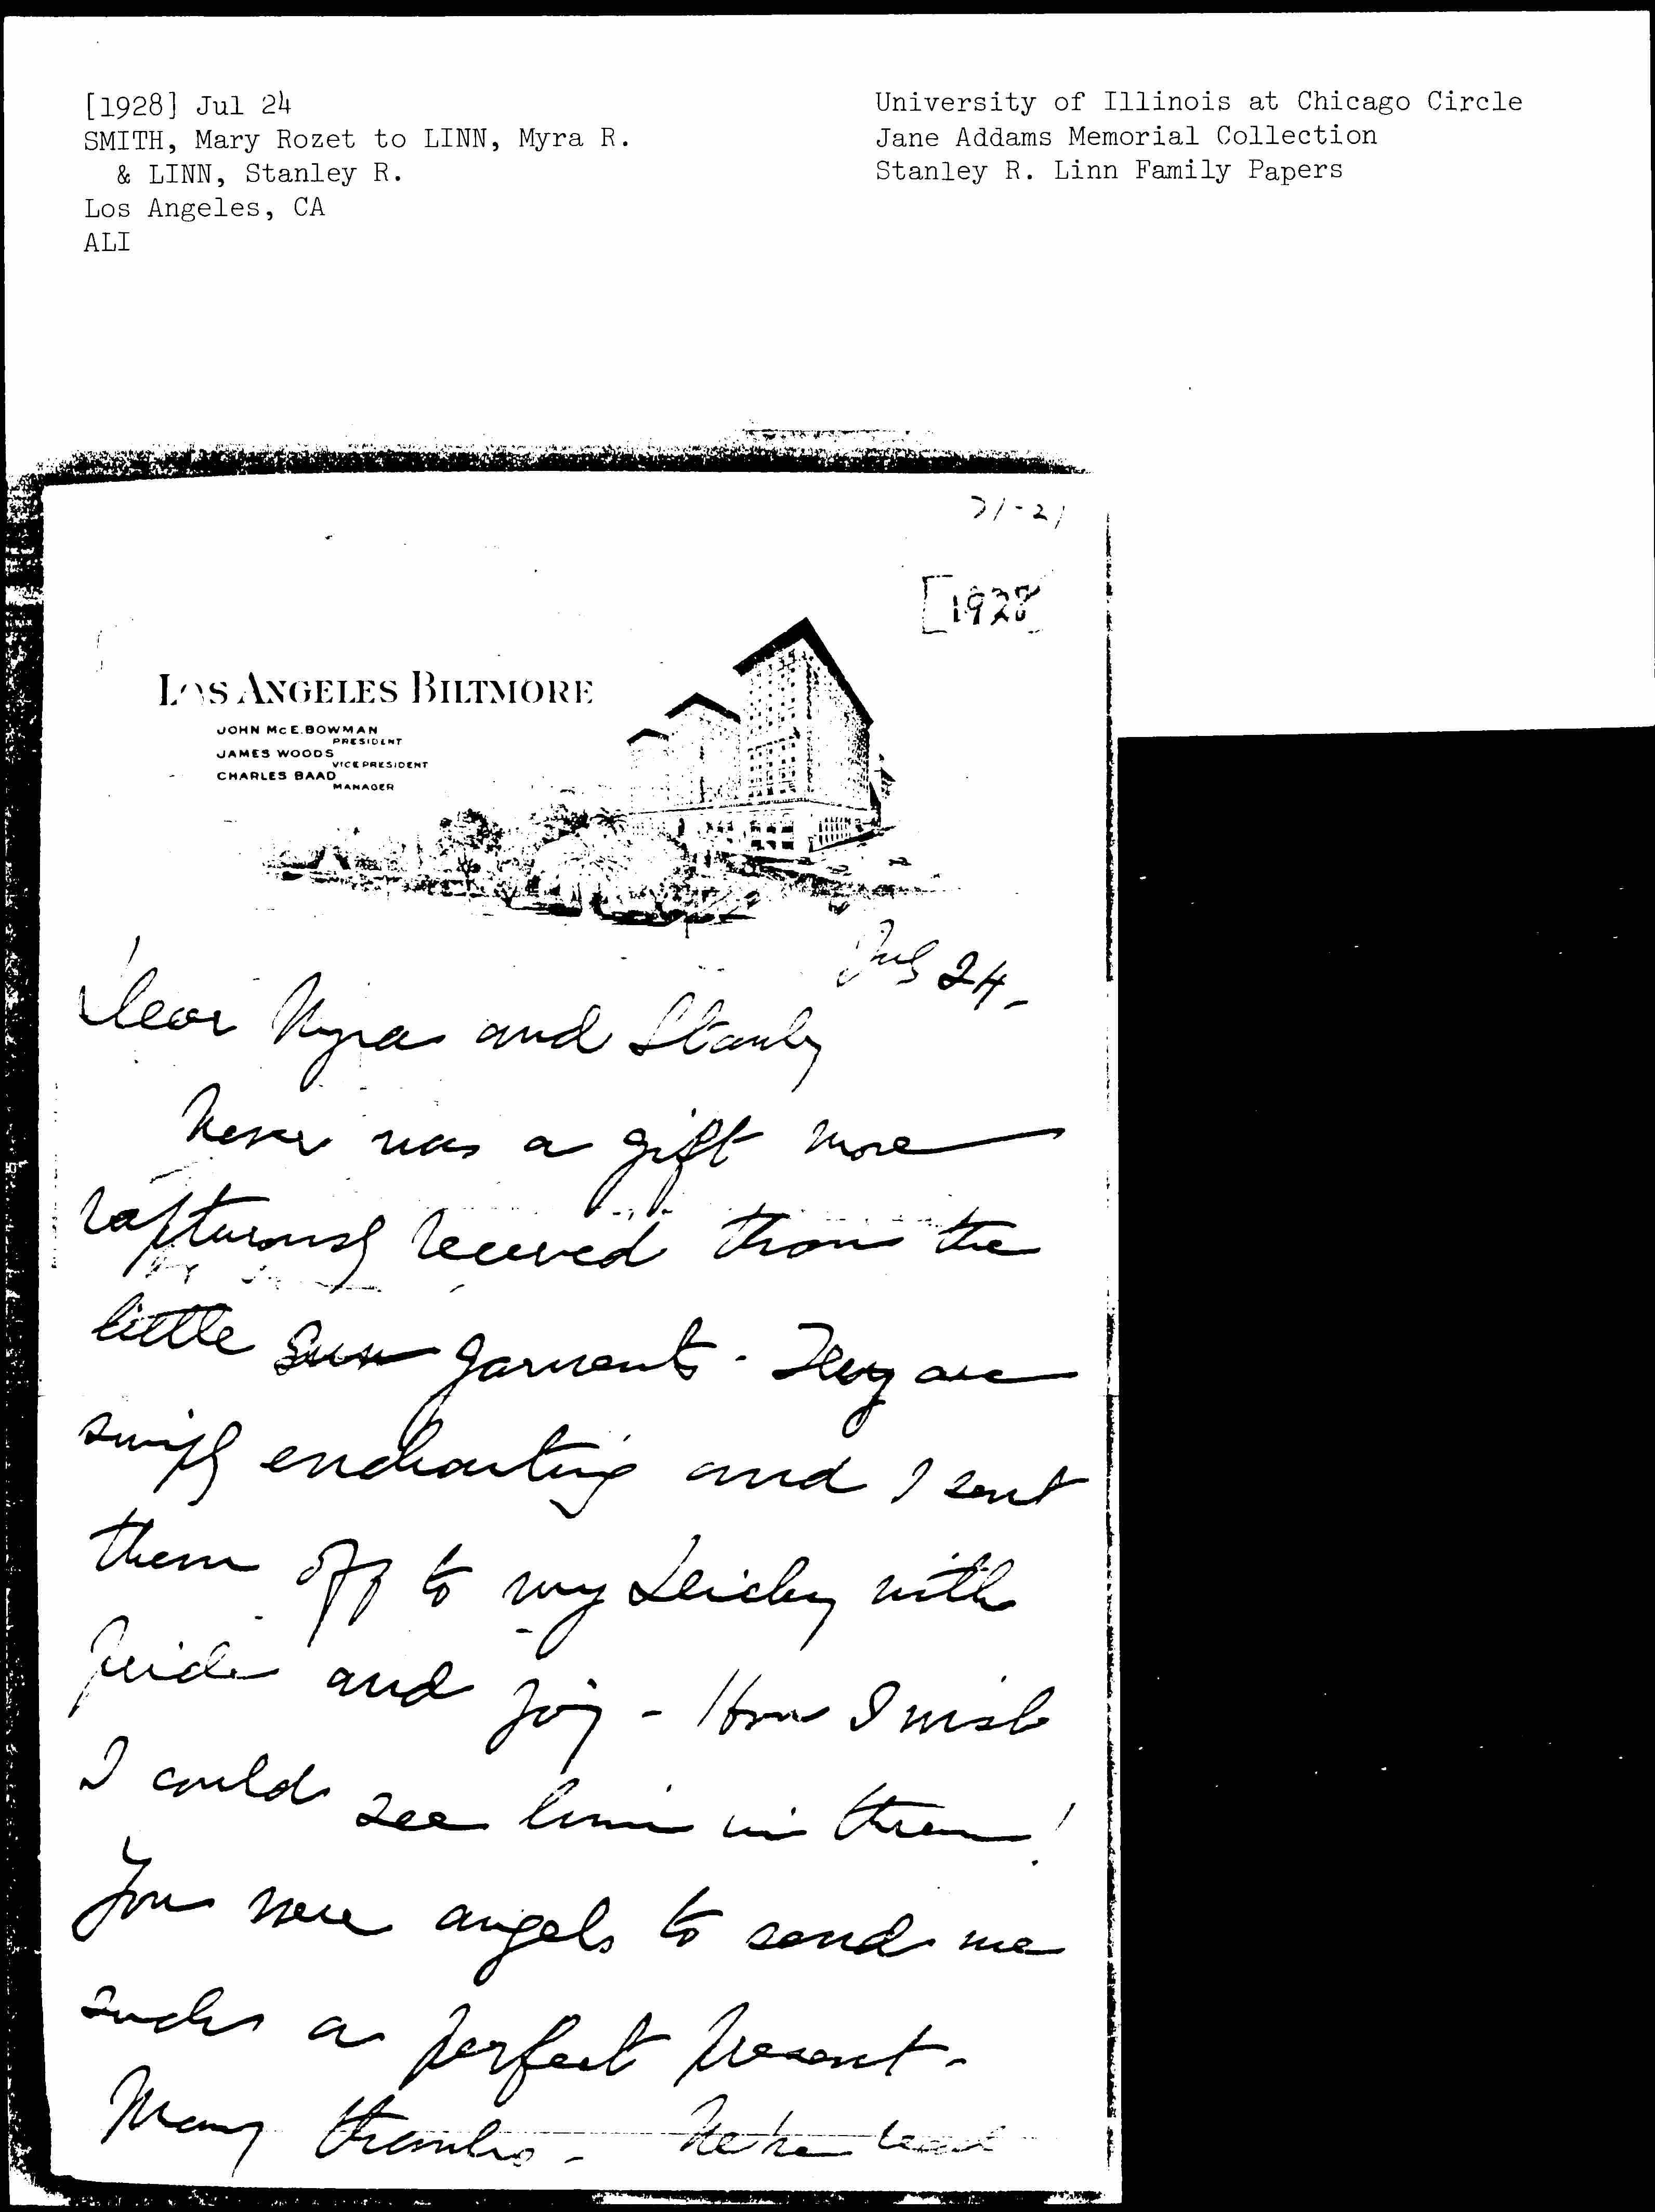 [1928] Jul 24
SMITH, Mary Rozet to LINN, Myra R.
& LINN, Stanley R.
Los Angeles, CA
ALI
University of Illinois at Chicago Circle
Jane Addams Memorial Collection
Stanley R. Linn Family Papers
21-21
[1928]
LOS ANGELES BILTMORE
JOHN McE. BOWMAN
PRESIDENT
JAMES WOODS
VICE PRESIDENT
CHARLES BAAD
MANAGER
July 24-
Dear Myra and Stanley
Never was a gift more
rapturously received than the
little sun garments. They are
simply enchanting and I sent
them off to my with
pride and joy - How I wish
I could see him in them!
You were angels to send me
such a perfect present-
Many thanks-